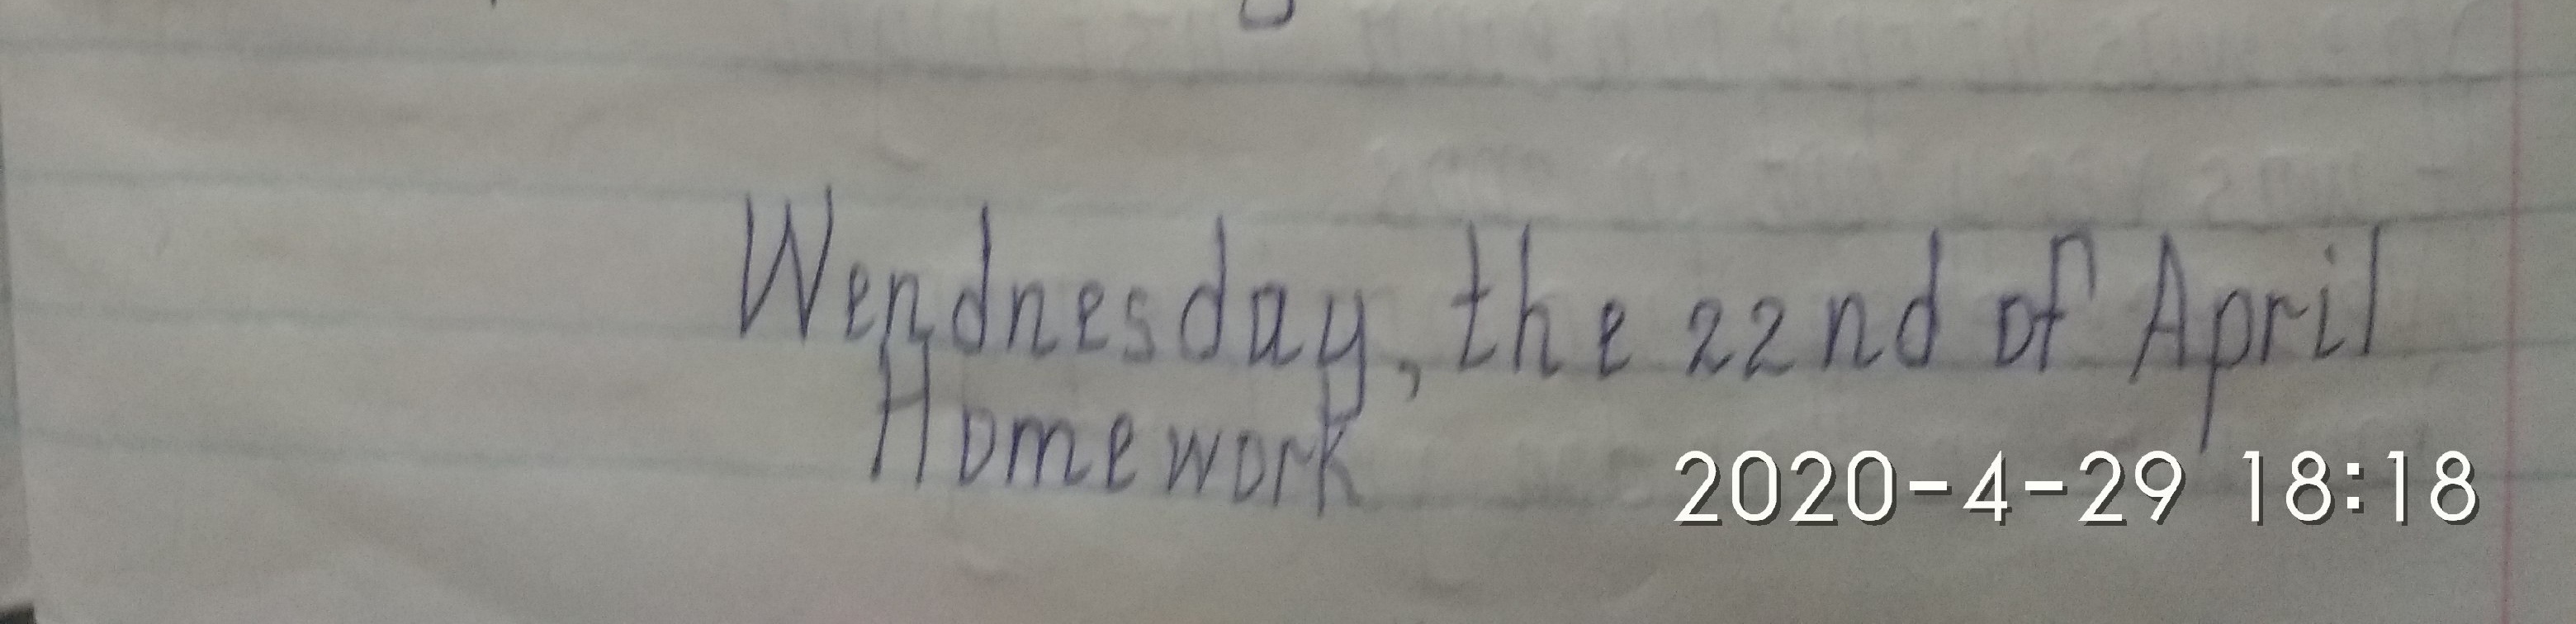 Wendnesday, the 22nd of April
Homework
2020-4-29 18:18